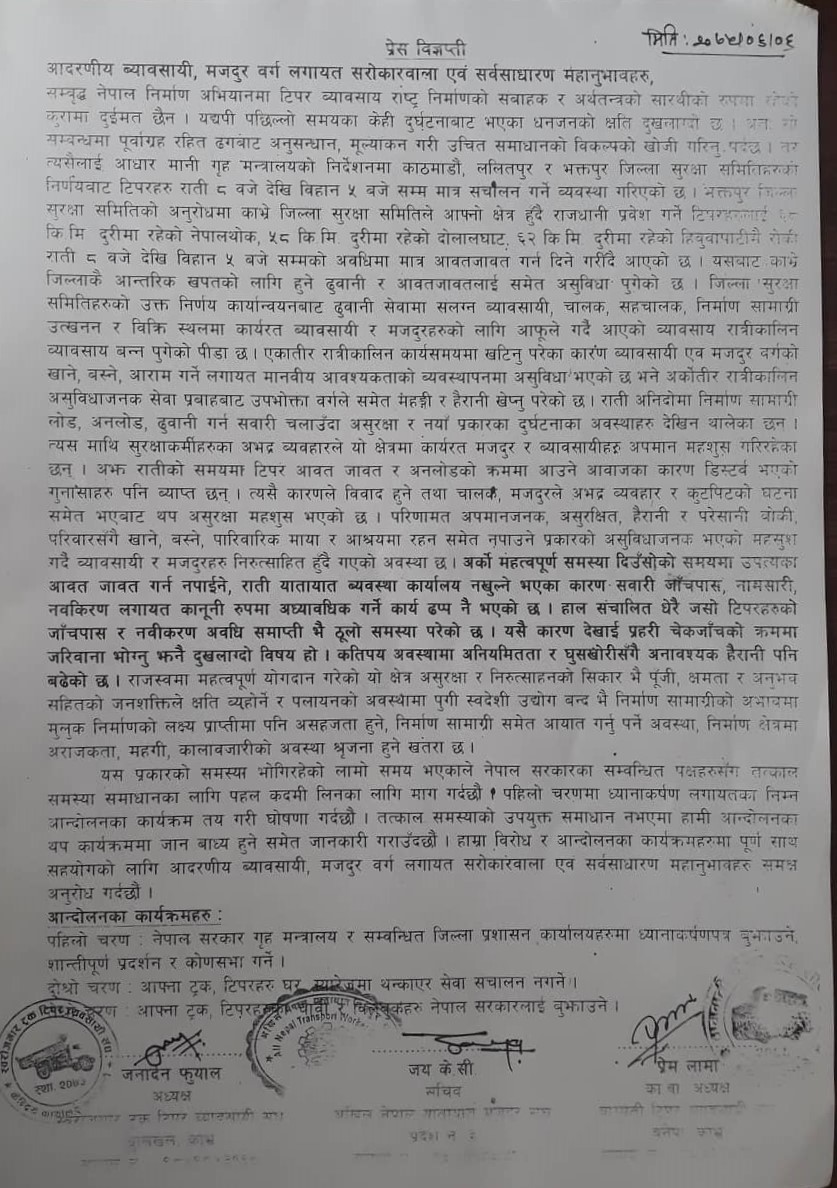 मिति : २०७५/०६/०६
प्रेस विज्ञप्ती
आदरणीय ब्यावसायी, मजदुर वर्ग लगायत सरोकारवाला एवं सर्वसाधारण महानुभावहरु,
सम्वृद्ध नेपाल निर्माण अभियानमा टिपर ब्यावसाय राष्ट्र निर्माणको सबाहक र अर्थतन्त्रको सारथीको रुपमा रहेको
कुरामा दुईमत छैन । यद्यपी पछिल्लो समयका केही दुर्घटनाबाट भएका धनजनको क्षति दुखलाग्दो छ ।
सम्वन्धमा पूर्वाग्रह रहित ढगबाट अनुसन्धान, मूल्याकन गरी उचित समाधानको विकल्पको खोजी गरिनु पर्दछ ।
त्यसैलाई आधार मानी गृह मन्त्रालयको निर्देशनमा काठमाडौ, ललितपुर र भक्तपुर जिल्ला सुरक्षा समितिहरुको
निर्णयवाट टिपरहरु राती ८ वजे देखि विहान ५ बजे सम्म मात्र सचालन गर्ने ब्यवस्था गरिएको छ । भक्तपुर जिल्ला
सुरक्षा समितिको अनुरोधमा काभ्रे जिल्ला सुरक्षा समितिले आफ्नो क्षेत्र हुँदै राजधानी प्रवेश गर्ने टिपरहरुलाई
कि.मि. दुरीमा रहेको नेपालथोक, ५८ कि.मि. दुरीमा रहेको दोलालघाट, ६२ कि.मि. दुरीमा रहेको
राती ८ वजे देखि विहान ५ बजे सम्मको अवधिमा मात्र आवतजावत गर्न दिने गरीदै आएको छ । यसबाट काभ्रे
जिल्लाकै आन्तरिक खपतको लागि हुने ढुवानी र आवतजावतलाई समेत असुविधा पुगेको छ । जिल्ला सुरक्षा
समितिहरुको उक्त निर्णय कार्यान्वयनबाट ढुवानी सेवामा सलग्न ब्यावसायी, चालक, सहचालक, निर्माण सामाग्री
उत्खनन र विक्रि स्थलमा कार्यरत ब्यावसायी र मजदुरहरुको लागि आफूले गर्दै आएको ब्यावसाय रात्रीकालिन
ब्यावसाय बन्न पुगेको पीडा छ । एकातीर रात्रीकालिन कार्यसमयमा खटिनु परेका कारण ब्यावसायी एव मजदुर वर्गको
खाने, बस्ने, आराम गर्ने लगायत मानवीय आवश्यकताको ब्यवस्थापनमा असुविधा भएको छ भने अर्कोतीर रात्रीकालिन
असुविधाजनक सेवा प्रबाहबाट उपभोक्ता वर्गले समेत महङ्गी र हैरानी खेप्नु परेको छ । राती अनिदोमा निर्माण सामागी
लोड, अनलोड, ढुवानी गर्न सवारी चलाउँदा असुरक्षा र नयाँ प्रकारका दुर्घटनाका अवस्थाहरु देखिन थालेका छन ।
त्यस माथि सुरक्षाकर्मीहरुका अभद्र ब्यवहारले यो क्षेत्रमा कार्यरत मजदुर र ब्यावसायीहरु अपमान महशुस गरिरहेका
छन् । अझ रातीको समयमा टिपर आवत जावत र अनलोडको क्रममा आउने आवाजका कारण डिस्टर्व भएको
गुनासाहरु पनि ब्याप्त छन् । त्यसै कारणले विवाद हुने तथा चालक, मजदुरले अभद्र ब्यवहार र कुटपिटको घटना
समेत भएबाट थप असुरक्षा महशुस भएको छ । परिणामत अपमानजनक, असुरक्षित, हैरानी र परेसानी वोकी,
परिवारसँगै खाने, बस्ने, पारिवारिक माया र आश्रयमा रहन समेत नपाउने प्रकारको असुविधाजनक भएको महसुश
गर्दै ब्यावसायी र मजदुरहरु निरुत्साहित हुँदै गएको अवस्था छ । अर्को महत्वपूर्ण समस्या दिउँसोको समयमा उपत्यका
आवत जावत गर्न नपाईने, राती यातायात ब्यवस्था कार्यालय नखुल्ने भएका कारण सवारी जाँचपास, नामसारी,
नवकिरण लगायत कानूनी रुपमा अध्यावधिक गर्ने कार्य ढप्प नै भएको छ । हाल संचालित धेरै जसो टिपरहरुको
जाँचपास र नवीकरण अवधि समाप्ती भै ठूलो समस्या परेको छ । यसै कारण देखाई प्रहरी चेकजाँचको क्रममा
जरिवाना भोग्नु झनै दुखलाग्दो विषय हो । कतिपय अवस्थामा अनियमितता र घुसखोरीसँगै अनावश्यक हैरानी पनि
बढेको छ । राजस्वमा महत्वपूर्ण योगदान गरेको यो क्षेत्र असुरक्षा र निरुत्साहनको सिकार भै पूँजी, क्षमता र अनुभव
सहितको जनशक्तिले क्षति ब्यहोर्ने र पलायनको अवस्थामा पुगी स्वदेशी उद्योग बन्द भै निर्माण सामाग्रीको अभावमा
मुलुक निर्माणको लक्ष्य प्राप्तीमा पनि असहजता हुने, निर्माण सामाग्री समेत आयात गर्नु पर्ने अवस्था, निर्माण क्षेत्रमा
अराजकता, महगी, कालावजारीको अवस्था श्रृजना हुने खतरा छ ।
यस प्रकारको समस्या भोगिरहेको लामो समय भएकाले नेपाल सरकारका सम्वन्धित पक्षहरुसँग तत्काल
समस्या समाधानका लागि पहल कदमी लिनका लागि माग गर्दछौ । पहिलो चरणमा ध्यानाकर्षण लगायतका निम्न
आन्दोलनका कार्यक्रम तय गरी घोषणा गर्दछौ । तत्काल समस्याको उपयुक्त समाधान नभएमा हामी आन्दोलनका
थप कार्यक्रममा जान बाध्य हुने समेत जानकारी गराउँदछौ । हाम्रा विरोध र आन्दोलनका कार्यक्रमहरुमा पूर्ण साथ
सहयोगको लागि आदरणीय ब्यावसायी, मजदुर वर्ग लगायत सरोकारवाला एव सर्वसाधारण महानुभावहरु समक्ष
अनुरोध गर्दछौ ।
आन्दोलनका कार्यक्रमहरु :
पहिलो चरण : नेपाल सरकार गृह मन्त्रालय र सम्वन्धित जिल्ला प्रशासन कार्यालयहरुमा ध्यानाकर्षणपत्र बुझाउने,
शान्तीपूर्ण प्रदर्शन र कोणसभा गर्ने ।
दोश्रो चरण : आफ्ना ट्रक, टिपरहरु घर, ग्यारेजमा थन्काएर सेवा सचालन नगर्ने ।
चरण : आफ्ना ट्रक, टिपरहरुका चावी र विलबुकहरु नेपाल सरकारलाई बुझाउने ।
All Nepal Transport Workers
स्था. २०७२
जनार्दन फुयाल
अध्यक्ष
जय के.सी
सचिव
प्रेम लामा
का.वा अध्यक्ष